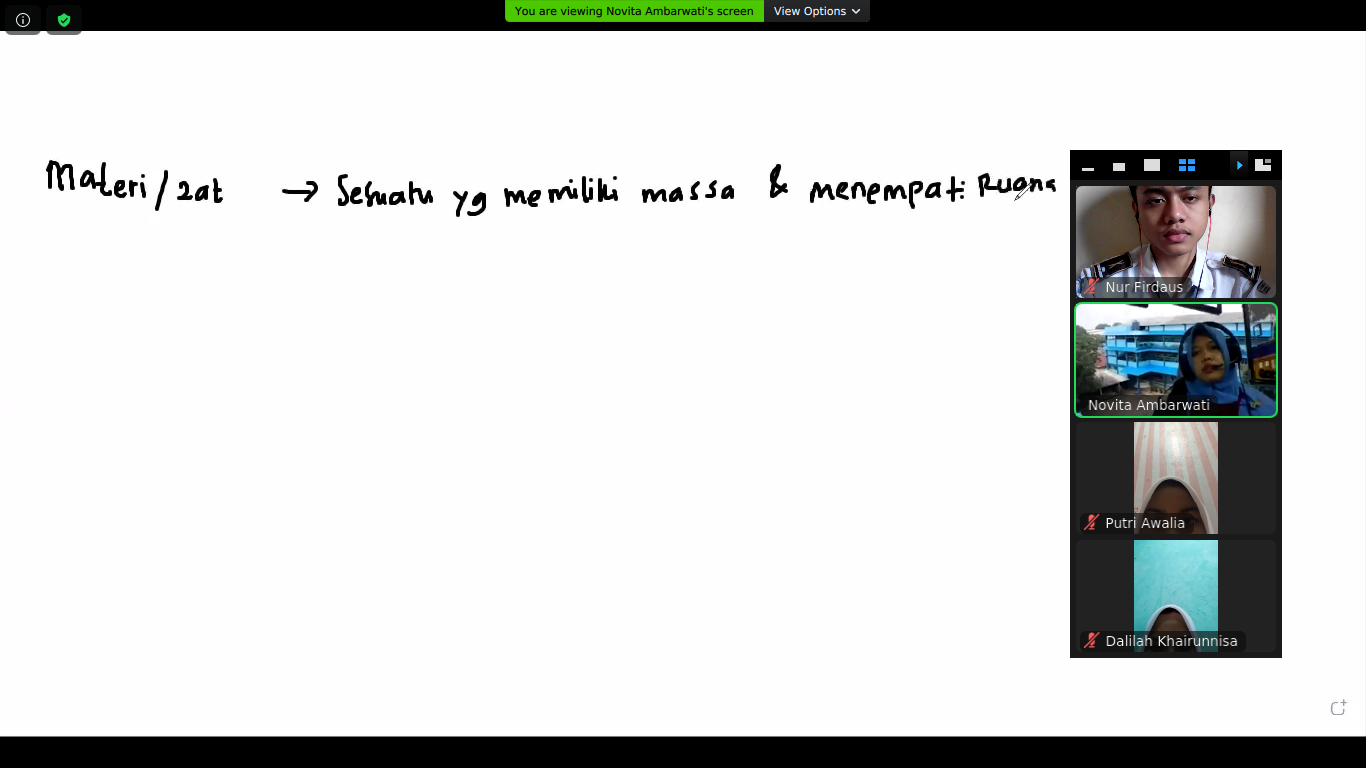 You are viewing Novita Ambarwati's screen View Options
Materi/zat → Sesuatu yg memiliki massa & menempati Ruang
Nur Firdaus
Novita Ambarwati
Putri Awalia
Dalilah Khairunnisa